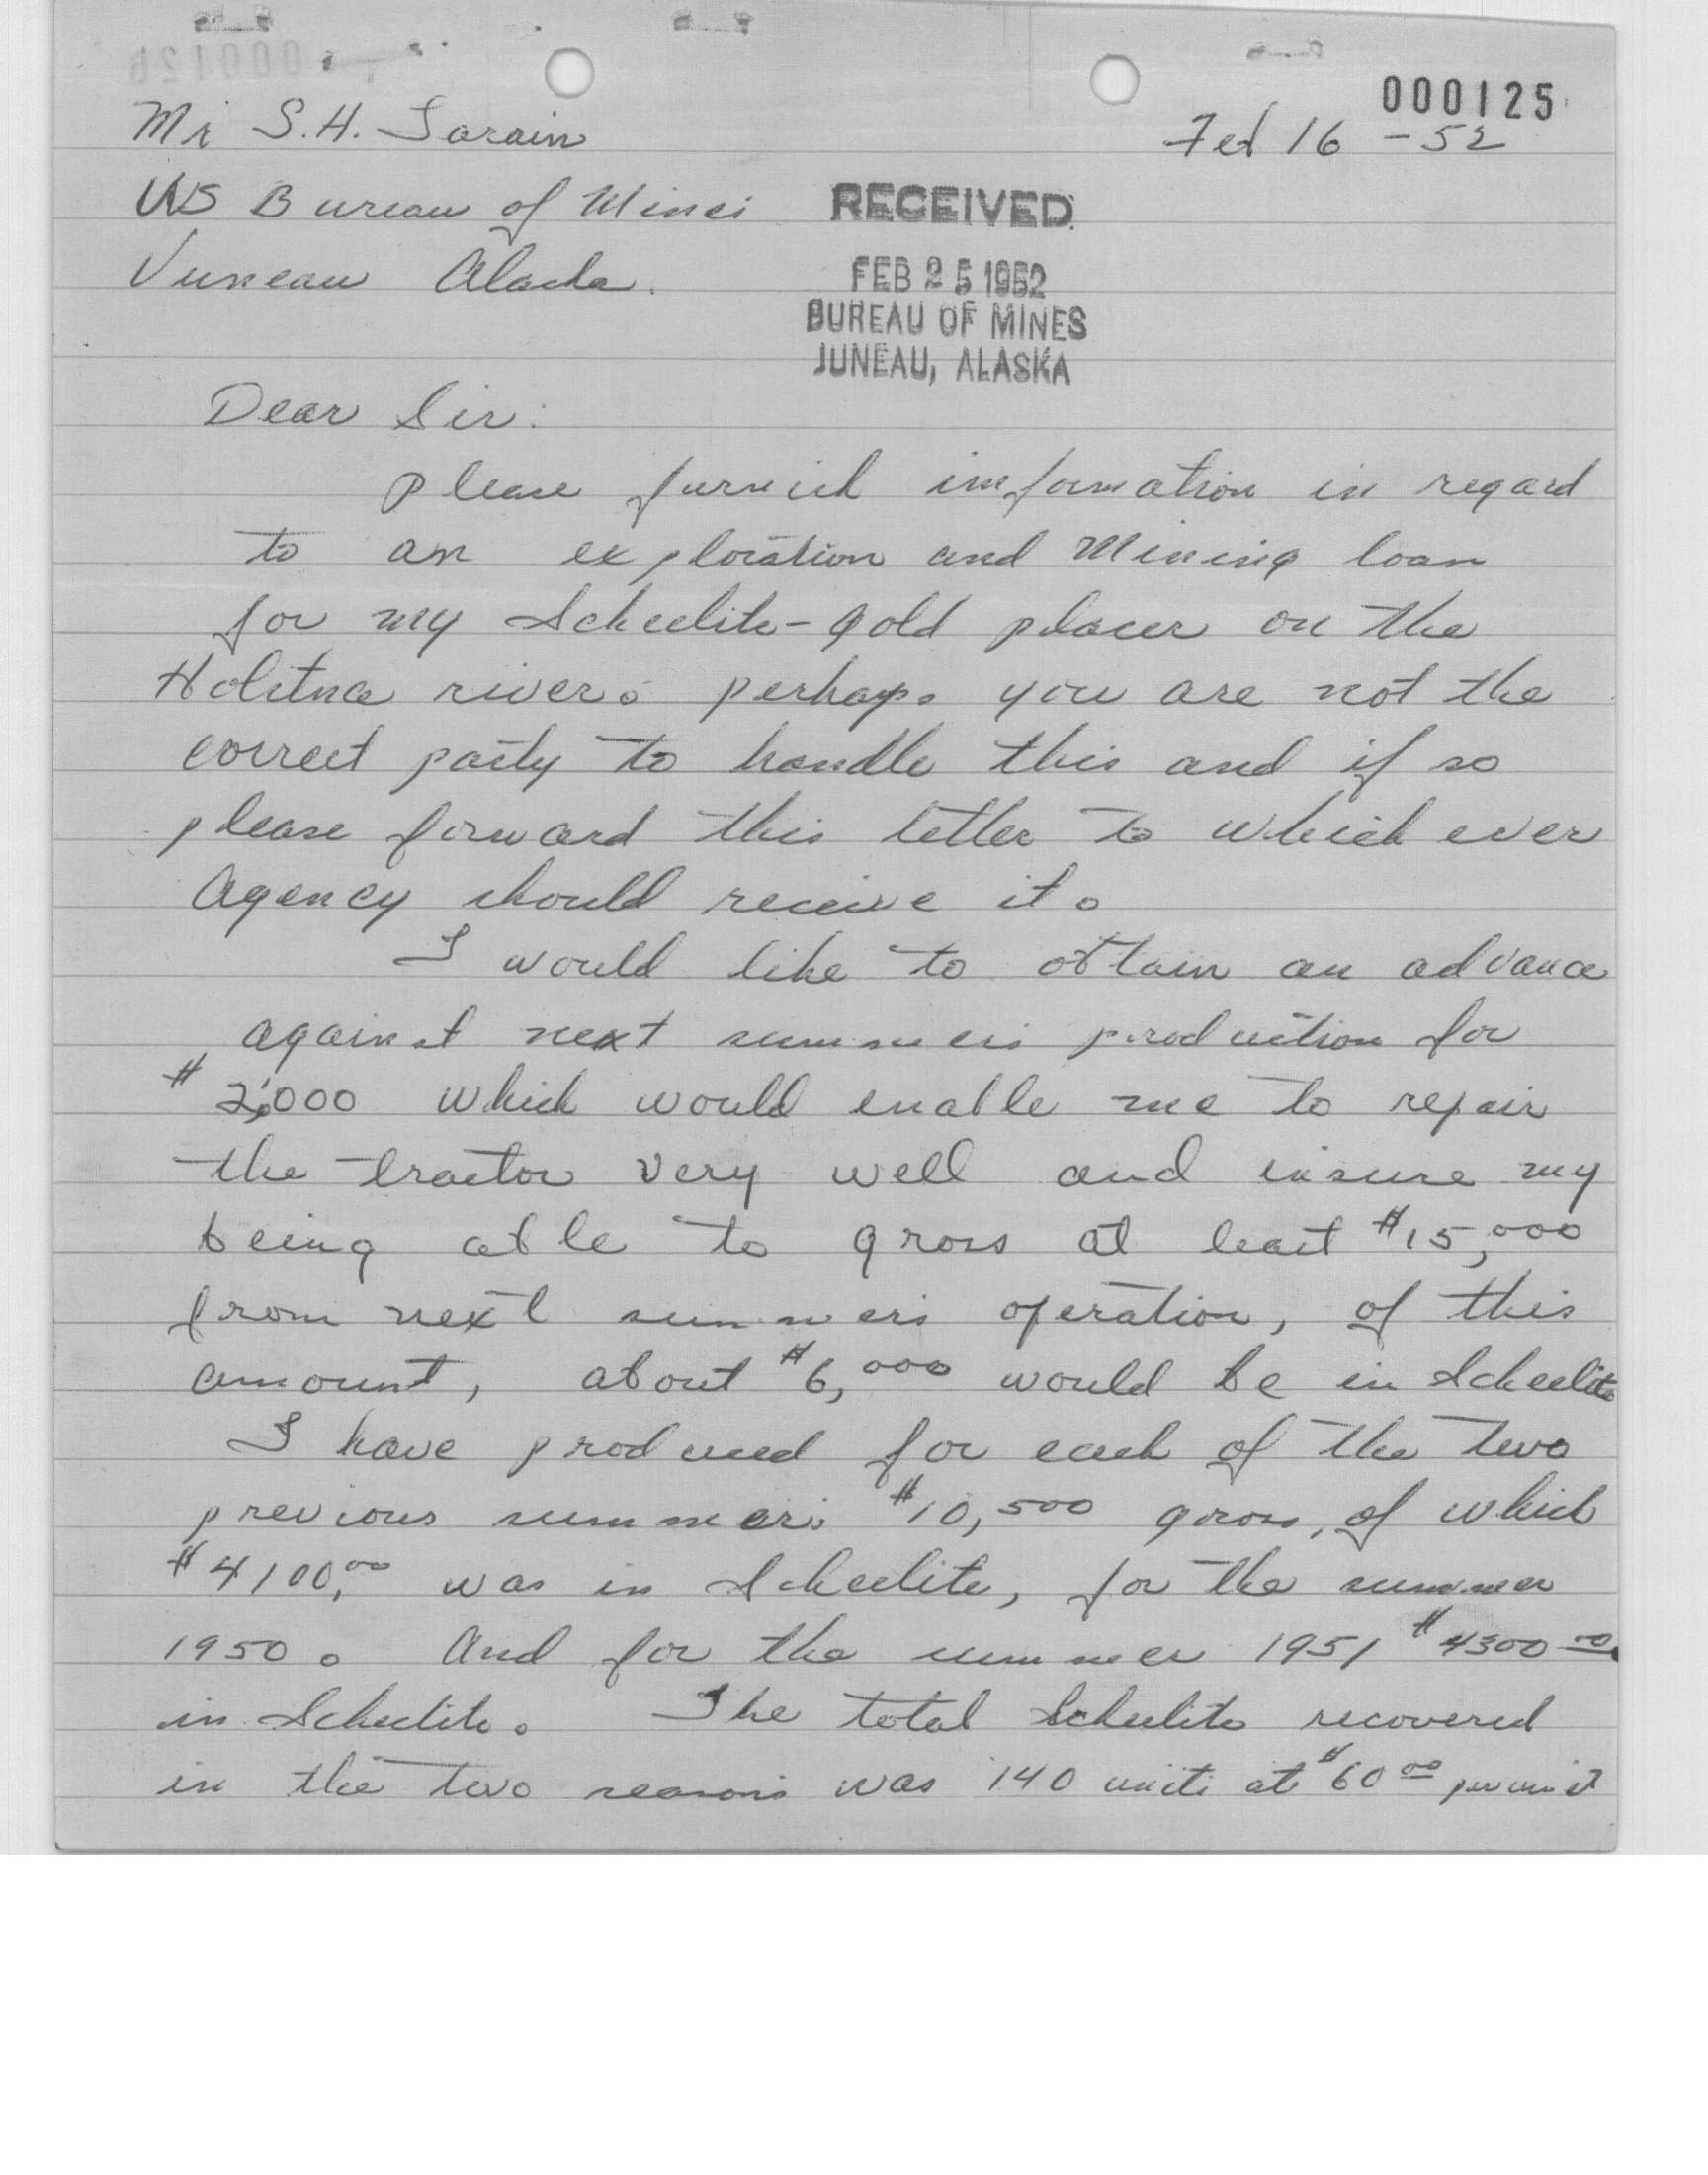 000125
Mr S.H. Lorain
Feb 16 - 52
US Bureau of Mines
RECEIVED
Juneau Alaska.
FEB 25 1952
BUREAU OF MINES
JUNEAU, ALASKA
Dear Sir:
please furnish information in regard
to an exploration and Mining loan
for my Scheelite-gold placer on the
Holitna river. perhaps you are not the
correct party to handle this and if so
please forward this letter to which ever
Agency should receive it.
I would like to obtain an advance
against next summers production for
$2,000 which would enable me to repair
the tractor very well and insure my
being able to gross at least $15,000
from next summers operation, of this
amount, about $6,000 would be in Scheelite
I have produced for each of the two
previous summers $10,500 gross, of which
$4100,00 was in Scheelite, for the summer
1950. And for the summer 1951 $4300 00
in Scheelite. The total Scheelite recovered
in the two seasons was 140 units at $60 00 per unit